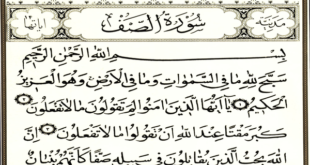 سُورَةُ الصَّفِّ
بِسْمِ اللَّهِ الرَّحْمَٰنِ الرَّحِيمِ
سَبَّحَ لِلَّهِ مَا فِي السَّمَٰوَٰتِ وَمَا فِي الْأَرْضِ وَهُوَ الْعَزِيزُ
الْحَكِيمُ يَا أَيُّهَا الَّذِينَ آمَنُوا لِمَ تَقُولُونَ مَا لَا تَفْعَلُونَ
كَبُرَ مَقْتًا عِندَ اللَّهِ أَن تَقُولُوا مَا لَا تَفْعَلُونَ إِنَّ
اللَّهَ يُحِبُّ الَّذِينَ يُقَاتِلُونَ فِي سَبِيلِهِ صَفًّا كَأَنَّهُم بُنْيَانٌ